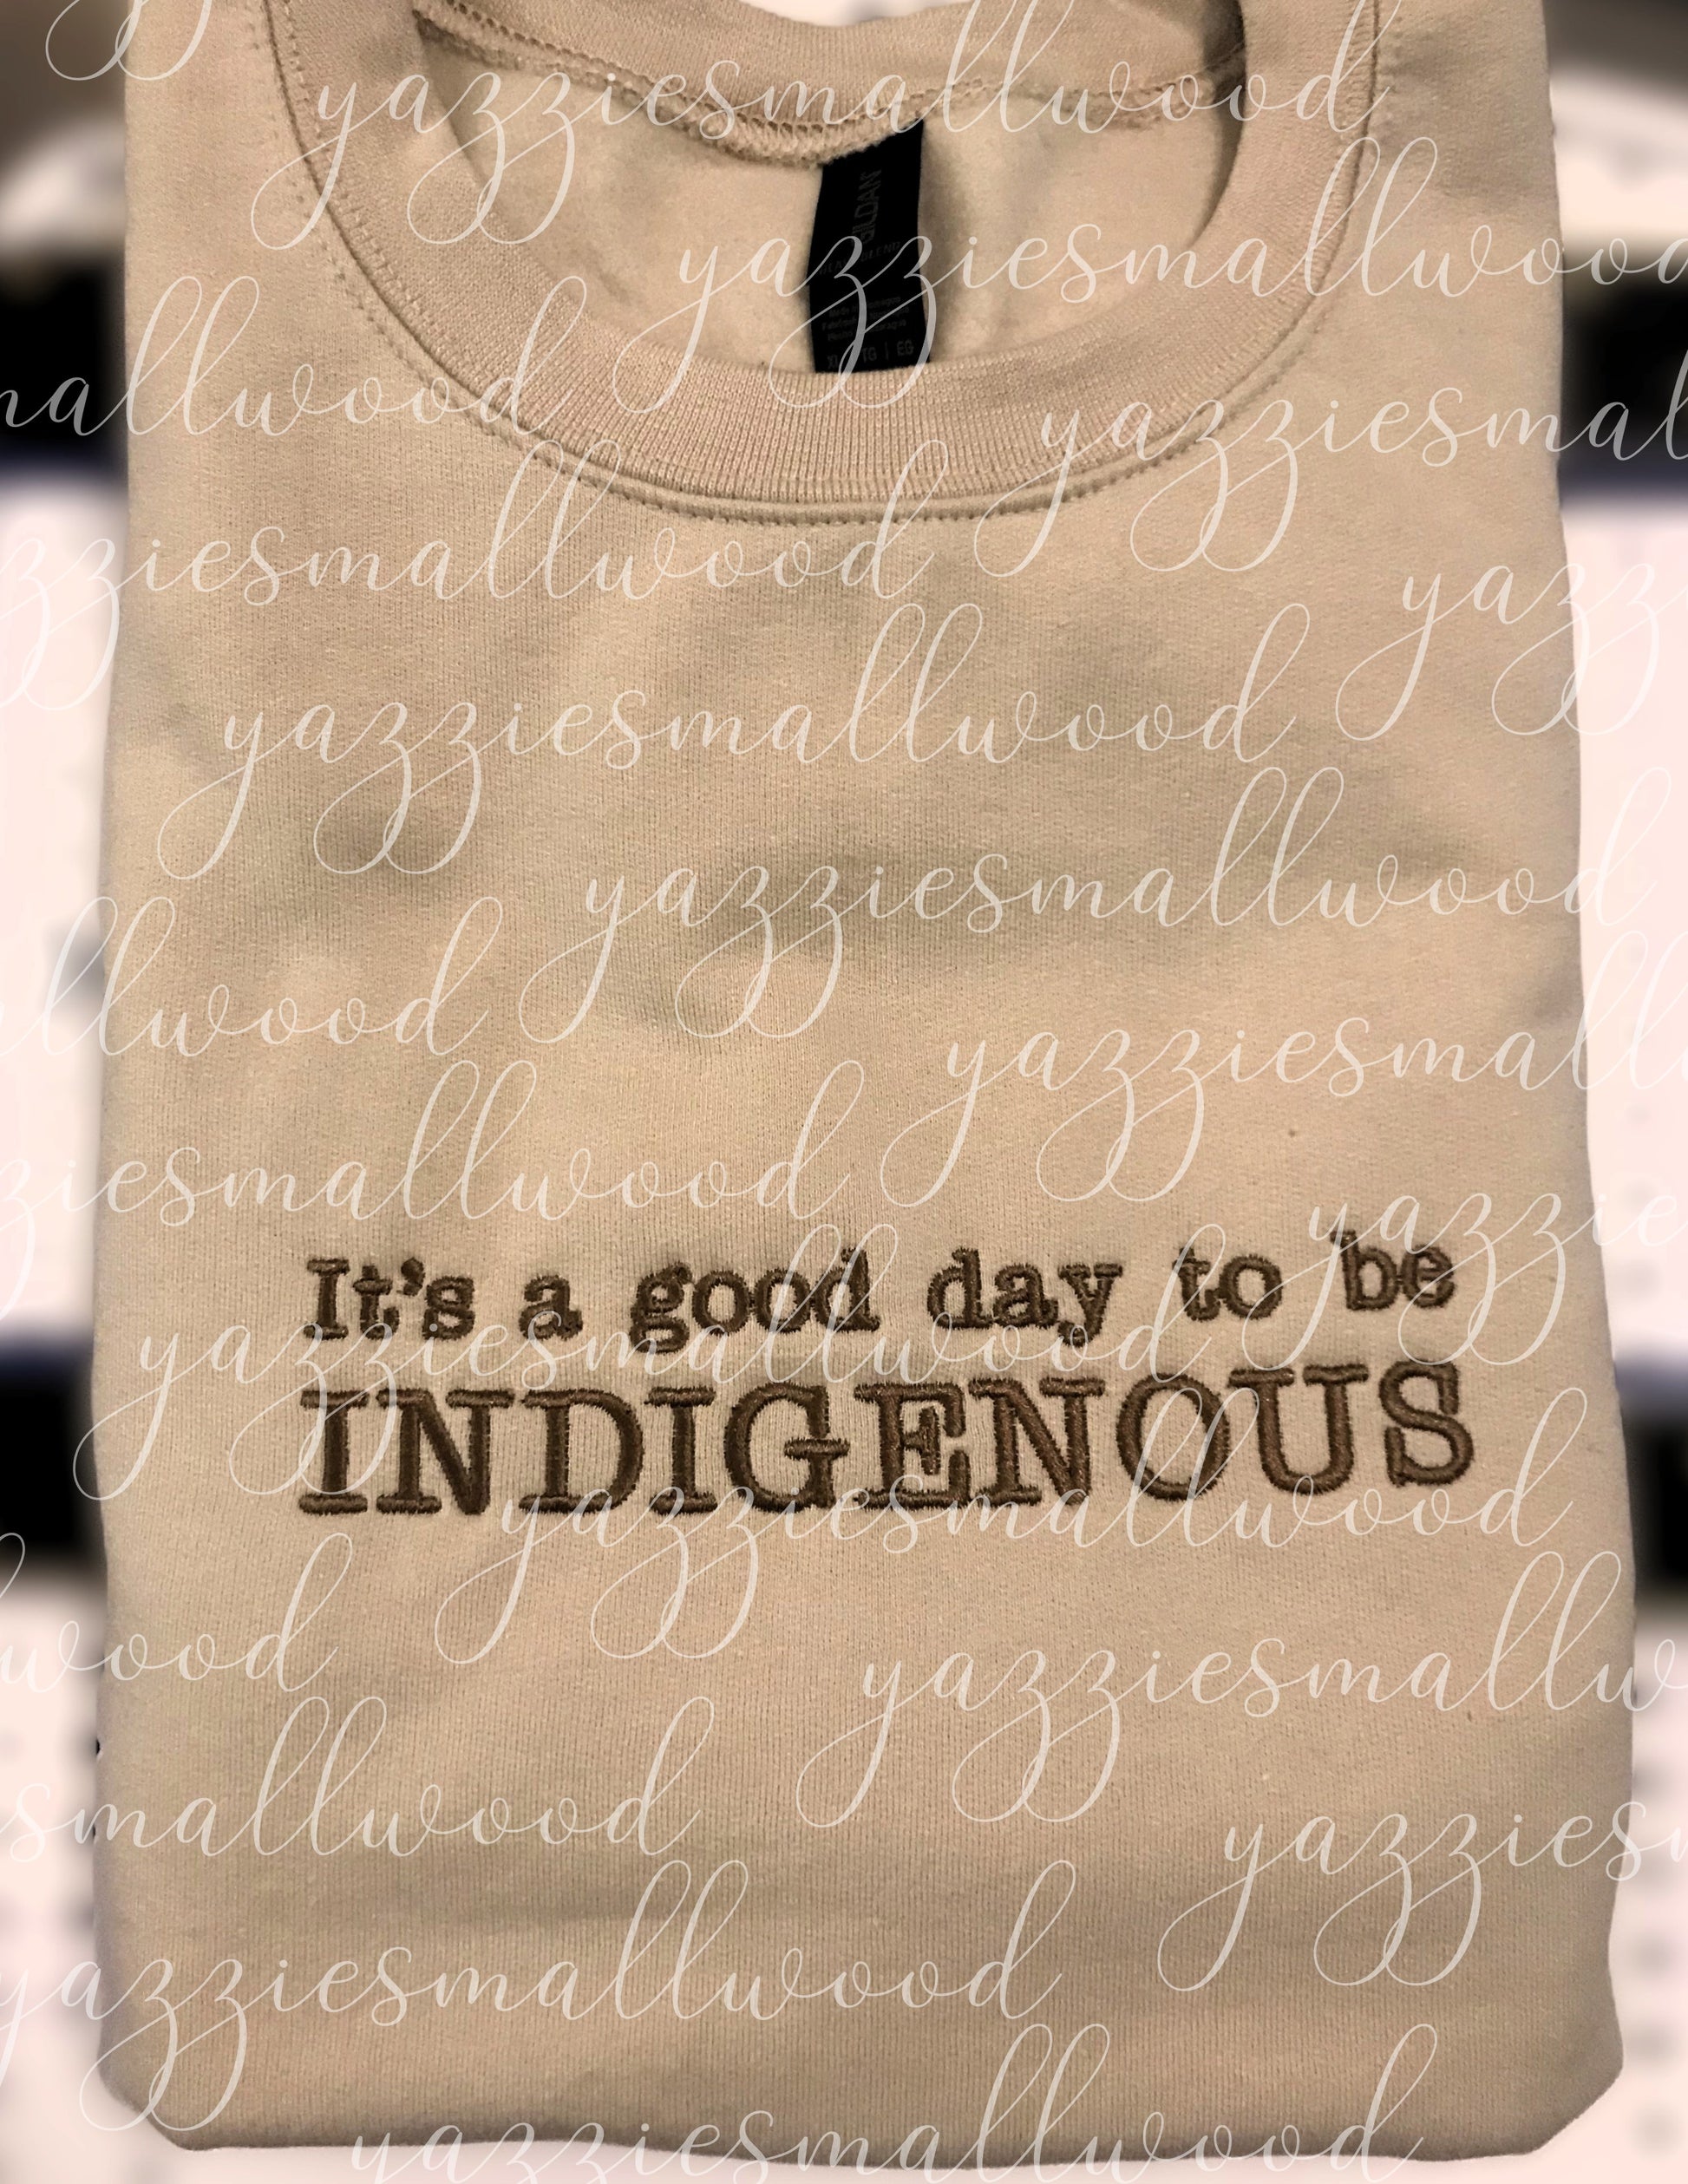 yazziesmallwood
GILDAN
yazziesmallwood
XL | TG | EG
mallwood
yazziesmal
zziesmallwood
yazz
yazziesmallwood
yazziesmallwood
mallwood
yazziesmallwood
ziesmallwood
yazzie
It's a good day to be
yazziesmallwood
INDIGENOUS
yazziesmallwood
wood
yazziesmallw
smallwood
yazzies
yazziesmallwood
yazziesmallwood